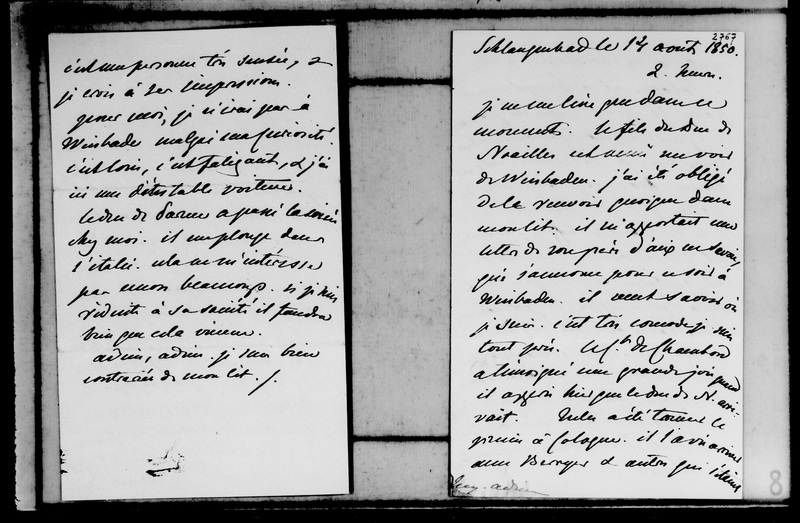 2767
Schlangenbad le 14 août 1850.
2 heures.
je me lève que dans ce
moment. le fils du Duc de
Noailles est venu me voir
de Wiesbaden. j'ai été obligé
de le recevoir quoique dans
mon lit. il m'apportait une
lettre de son père d'aix la
qui s'annonce pour ce soir à
Wiesbaden. il veut savoir où
je suis. c'est très comode je suis
tout près. le Cte de Chambord
a témoigné une grande joie quand
il apprit hier que le duc de N. arri-
vait. a été tomber le
premier à Cologne. il l'avait
avec Berryer & autres qui
adieu
c'est une personne très sensée, &
je crois à ses impressions.
pour moi, je n'irai pas à
Wiesbade malgré ma curiosité.
c'est loin, c'est fatigant, & j'ai
ici une détestable voiture.
le duc de Parme a passé la soirée
chez moi. il me plonge dans
l'italie. cela ne m'intéresse
pas encore beaucoup. si je suis
réduite à sa société il faudra
bien que cela vienne.
adieu, adieu. je suis bien
contrariée de mon lit. /.
8